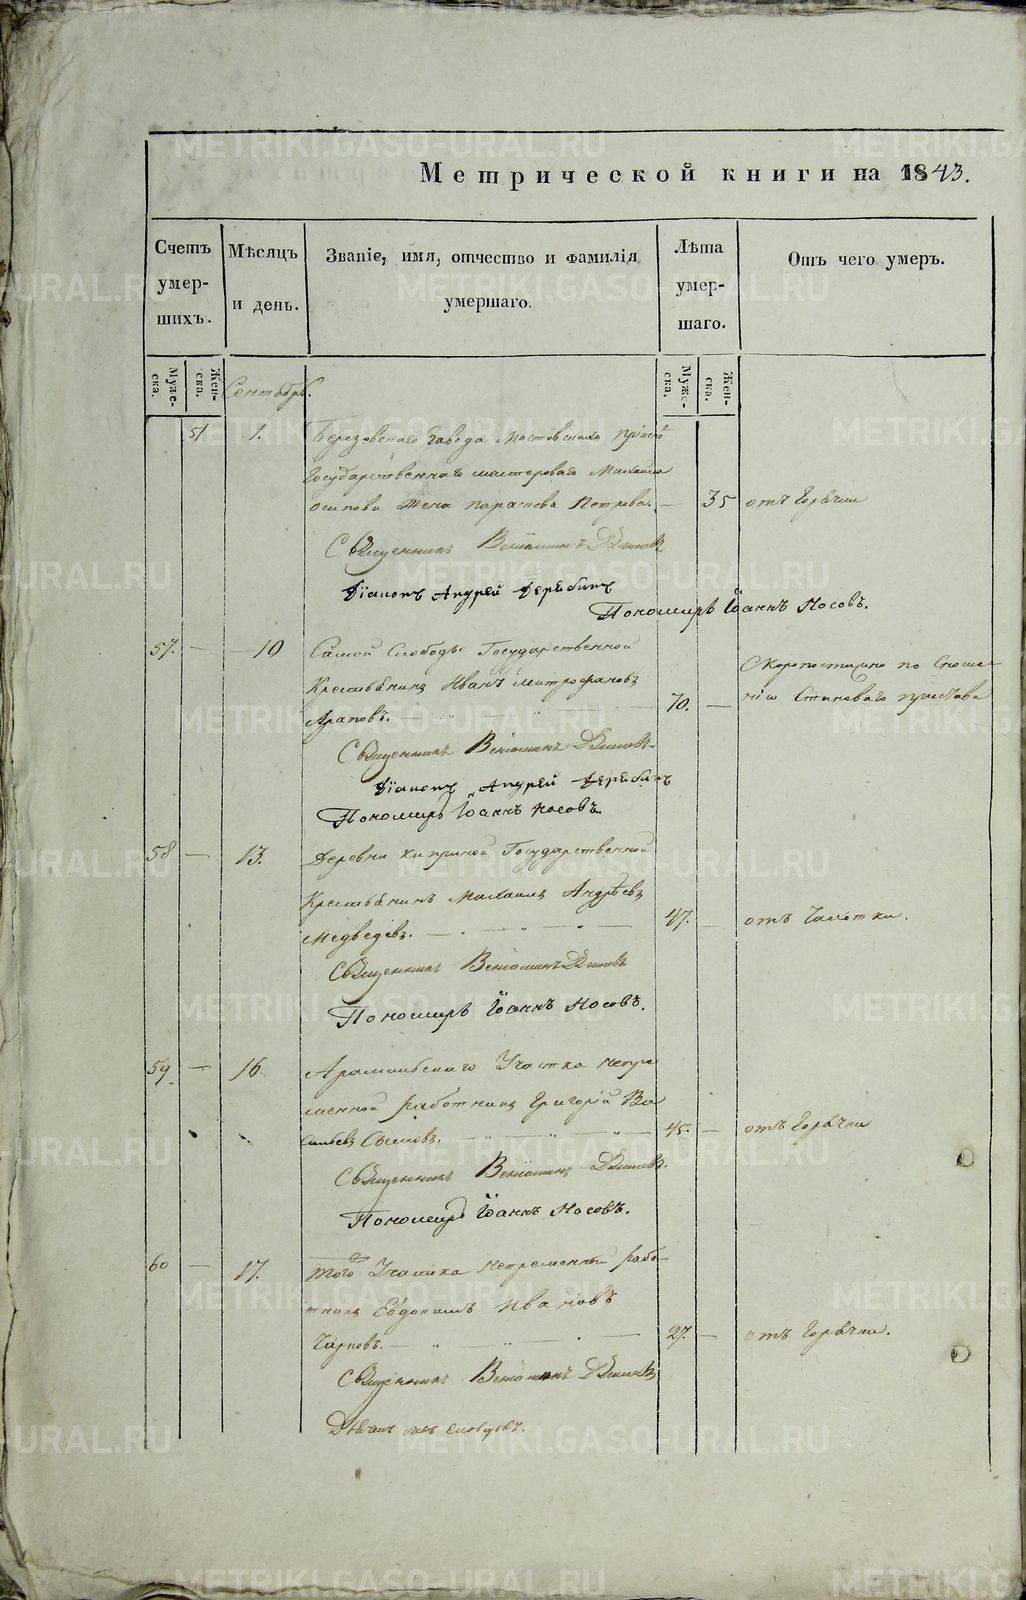 Метрической книги на 1843.
Счетъ умер-шихъ.
Мѣсяцъ и день.
Званіе, имя, отчество и фамилія умершаго.
Лѣта умер-шаго.
Отъ чего умеръ.
Муже-ска.
Жен-ска.
Муже-ска.
Жен-ска.
Сентябрь.
51 1. Березовскаго завода Мостовскаго
Государственнаго мастероваго Михаила
Осипова жена Параскева Петрова. — 35 отъ Горячки
Священникъ Веніаминъ
Діаконъ Андрей Дерябинъ
Пономарь Іоаннъ Носовъ.
57. — 10 Самой Слободы Государственной
Крестьянинъ Иванъ Митрофановъ
Араповъ. 70. — Скоропостижно по Сноше-
нію Становаго пристава
Священникъ Веніаминъ
Діаконъ Андрей Дерябинъ
Пономарь Іоаннъ Носовъ.
58 — 13. Деревни Государственной
Крестьянинъ Михаилъ Андреевъ
Медведевъ. 47. — отъ Чахотки.
Священникъ Веніаминъ
Пономарь Іоаннъ Носовъ.
59 — 16 Арамильскаго Участка непре
менной работникъ Григорій Ва
сильевъ 45. — отъ Горячки
Священникъ Веніаминъ
Пономарь Іоаннъ Носовъ.
60 — 17. Того Участка непременный рабо-
тникъ Евдокимъ Ивановъ
27. — отъ Горячки.
Священникъ Веніаминъ
METRIKI.GASO-URAL.RU